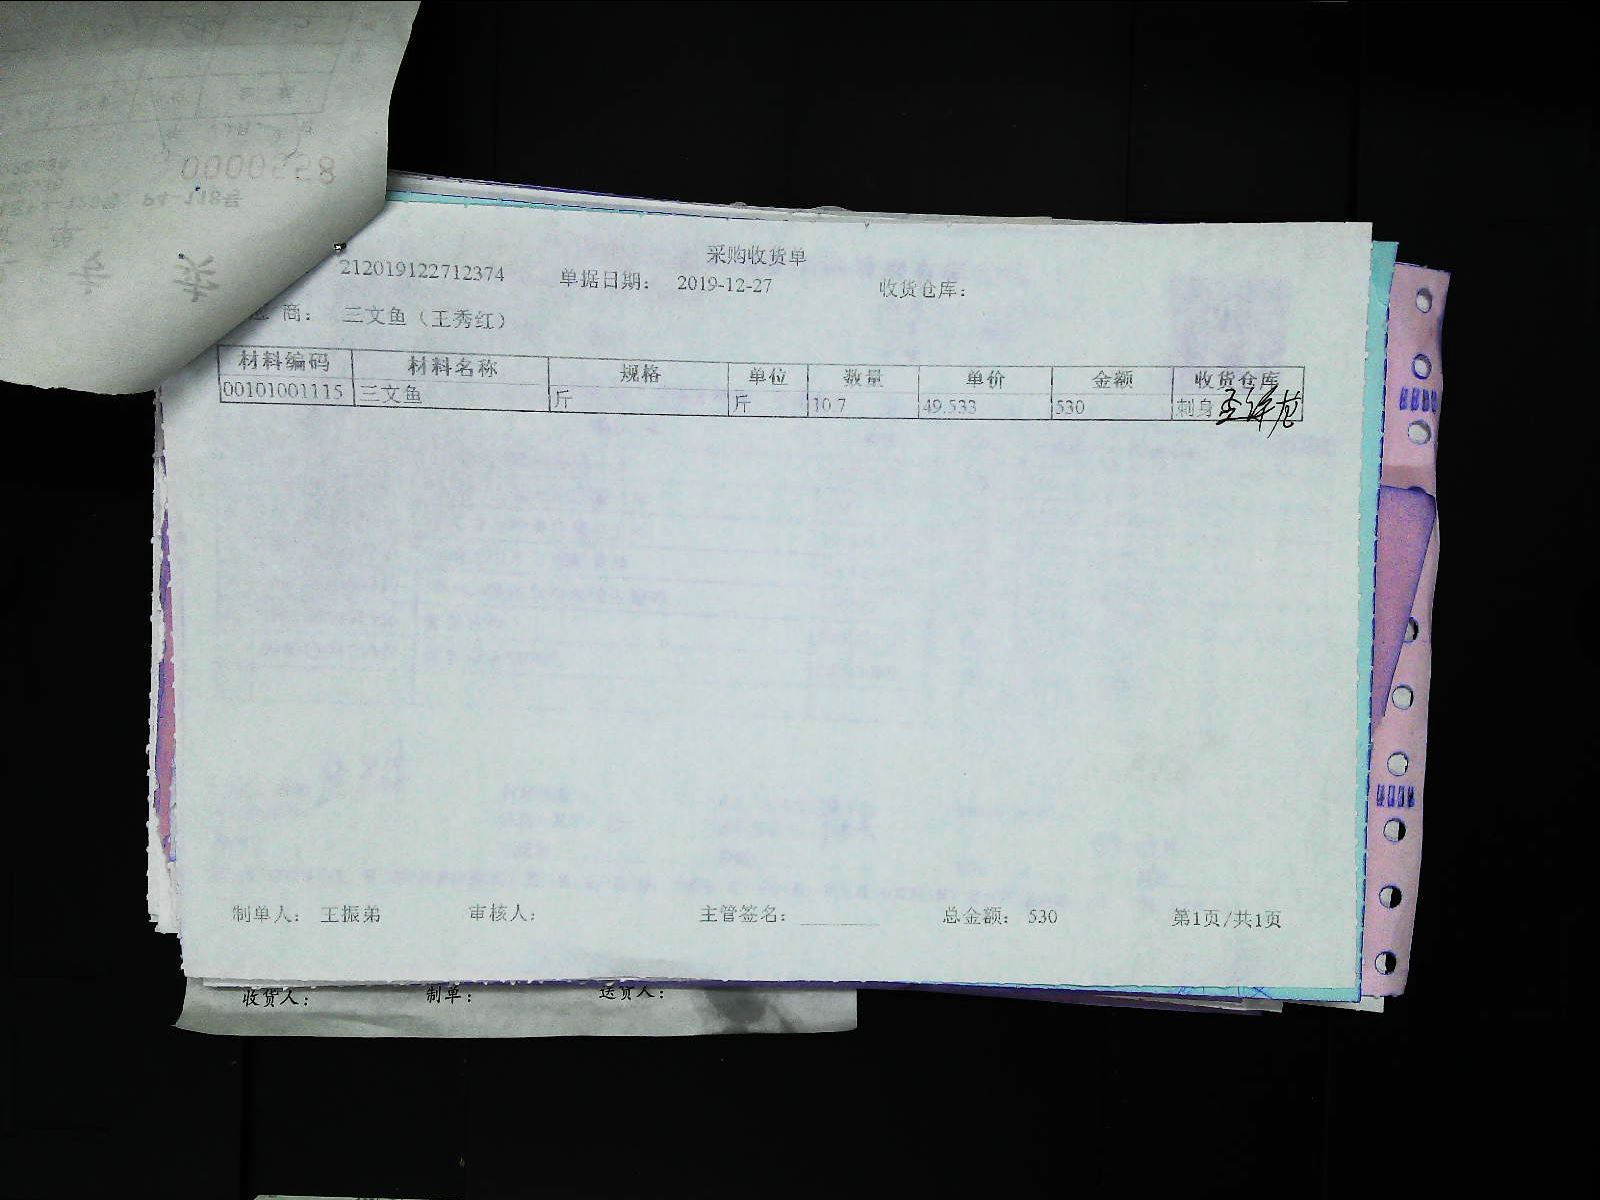 0000558
P4-118号
采购收货单
212019122712374 单据日期： 2019-12-27 收货仓库：
商： 三文鱼（王秀红）
材料编码 材料名称 规格 单位 数量 单价 金额 收货仓库
00101001115 三文鱼 斤 斤 10.7 49.533 530 刺身
制单人： 王振弟 审核人： 主管签名： 总金额： 530 第1页/共1页
收货人： 制单： 送货人：